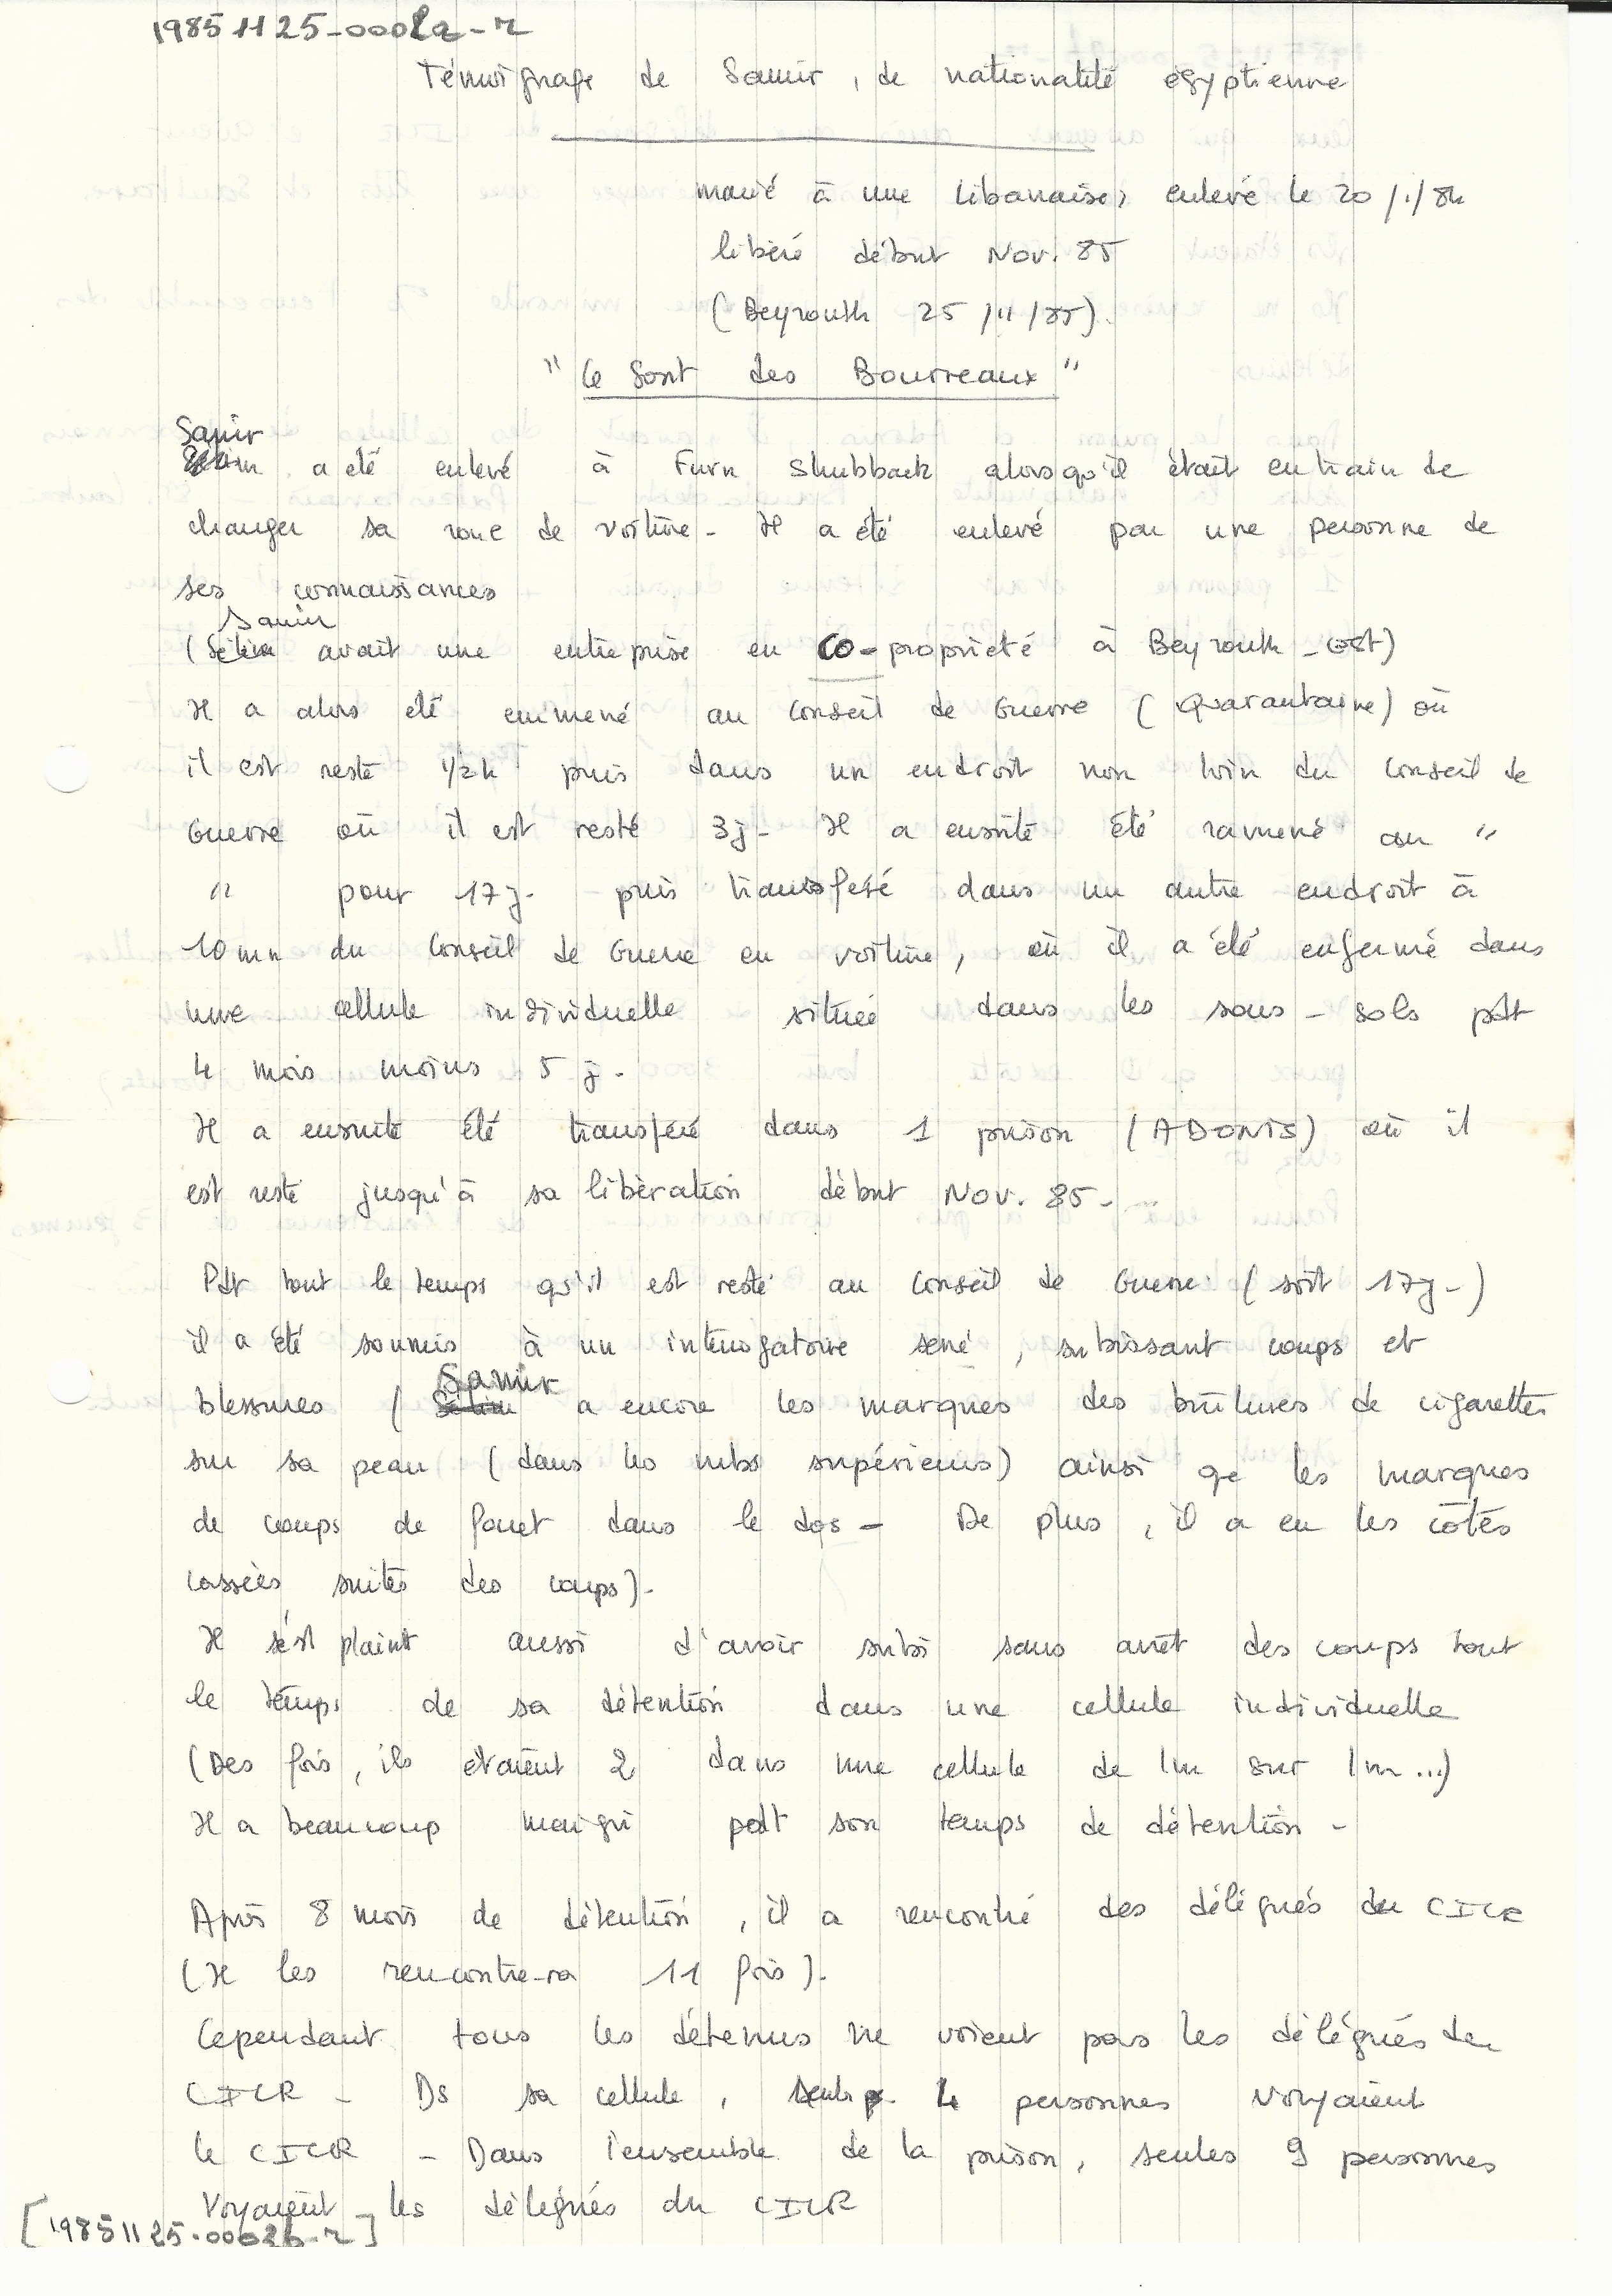 19851125-0002a-r
Témoignage de Samir, de nationalité égyptienne
marié à une libanaise, enlevé le 20/1/84
libéré début Nov. 85
(Beyrouth 25/11/85).
"Ce sont des Bourreaux"
Samir
a été enlevé à Furn Shubback alors qu'il était en train de
changer sa roue de voiture - Il a été enlevé par une personne de
ses connaissances
Samir
(Sélim avait une entreprise en co-propriété à Beyrouth-est)
Il a alors été emmené au Conseil de Guerre (Quarantaine) où
il est resté 1/2h puis dans un endroit non loin du Conseil de
Guerre où il est resté 3j - Il a ensuite été ramené au "
" pour 17j. puis transféré dans un autre endroit à
10mn du Conseil de Guerre en voiture, où il a été enfermé dans
une cellule individuelle située dans les sous-sols pdt
4 mois moins 5 j.
Il a ensuite été transféré dans 1 prison (ADONIS) où il
est resté jusqu'à sa libération début Nov. 85-
Pdt tout le temps qu'il est resté au Conseil de Guerre (soit 17j-)
il a été soumis à un interrogatoire serré, subissant coups et
Samir
blessures (Sélim a encore les marques des brûlures de cigarettes
sur sa peau (dans les mbs supérieurs) ainsi qe les marques
de coups de fouet dans le dos - De plus, il a eu les côtes
cassées suites des coups)-
Il s'est plaint aussi d'avoir subi sans arrêt des coups tout
le temps de sa détention dans une cellule individuelle
(Des fois, ils étaient 2 dans une cellule de 1m sur 1m...)
Il a beaucoup maigri pdt son temps de détention -
Après 8 mois de détention, il a rencontré des délégués du CICR
(Il les rencontre-ra 11 fois).
Cependant tous les détenus ne voient pas les délégués du
CICR - Ds sa cellule, seuls 4 personnes voyaient
le CICR - Dans l'ensemble de la prison, seules 9 personnes
voyaient les délégués du CICR
[19851125-0002b-r]